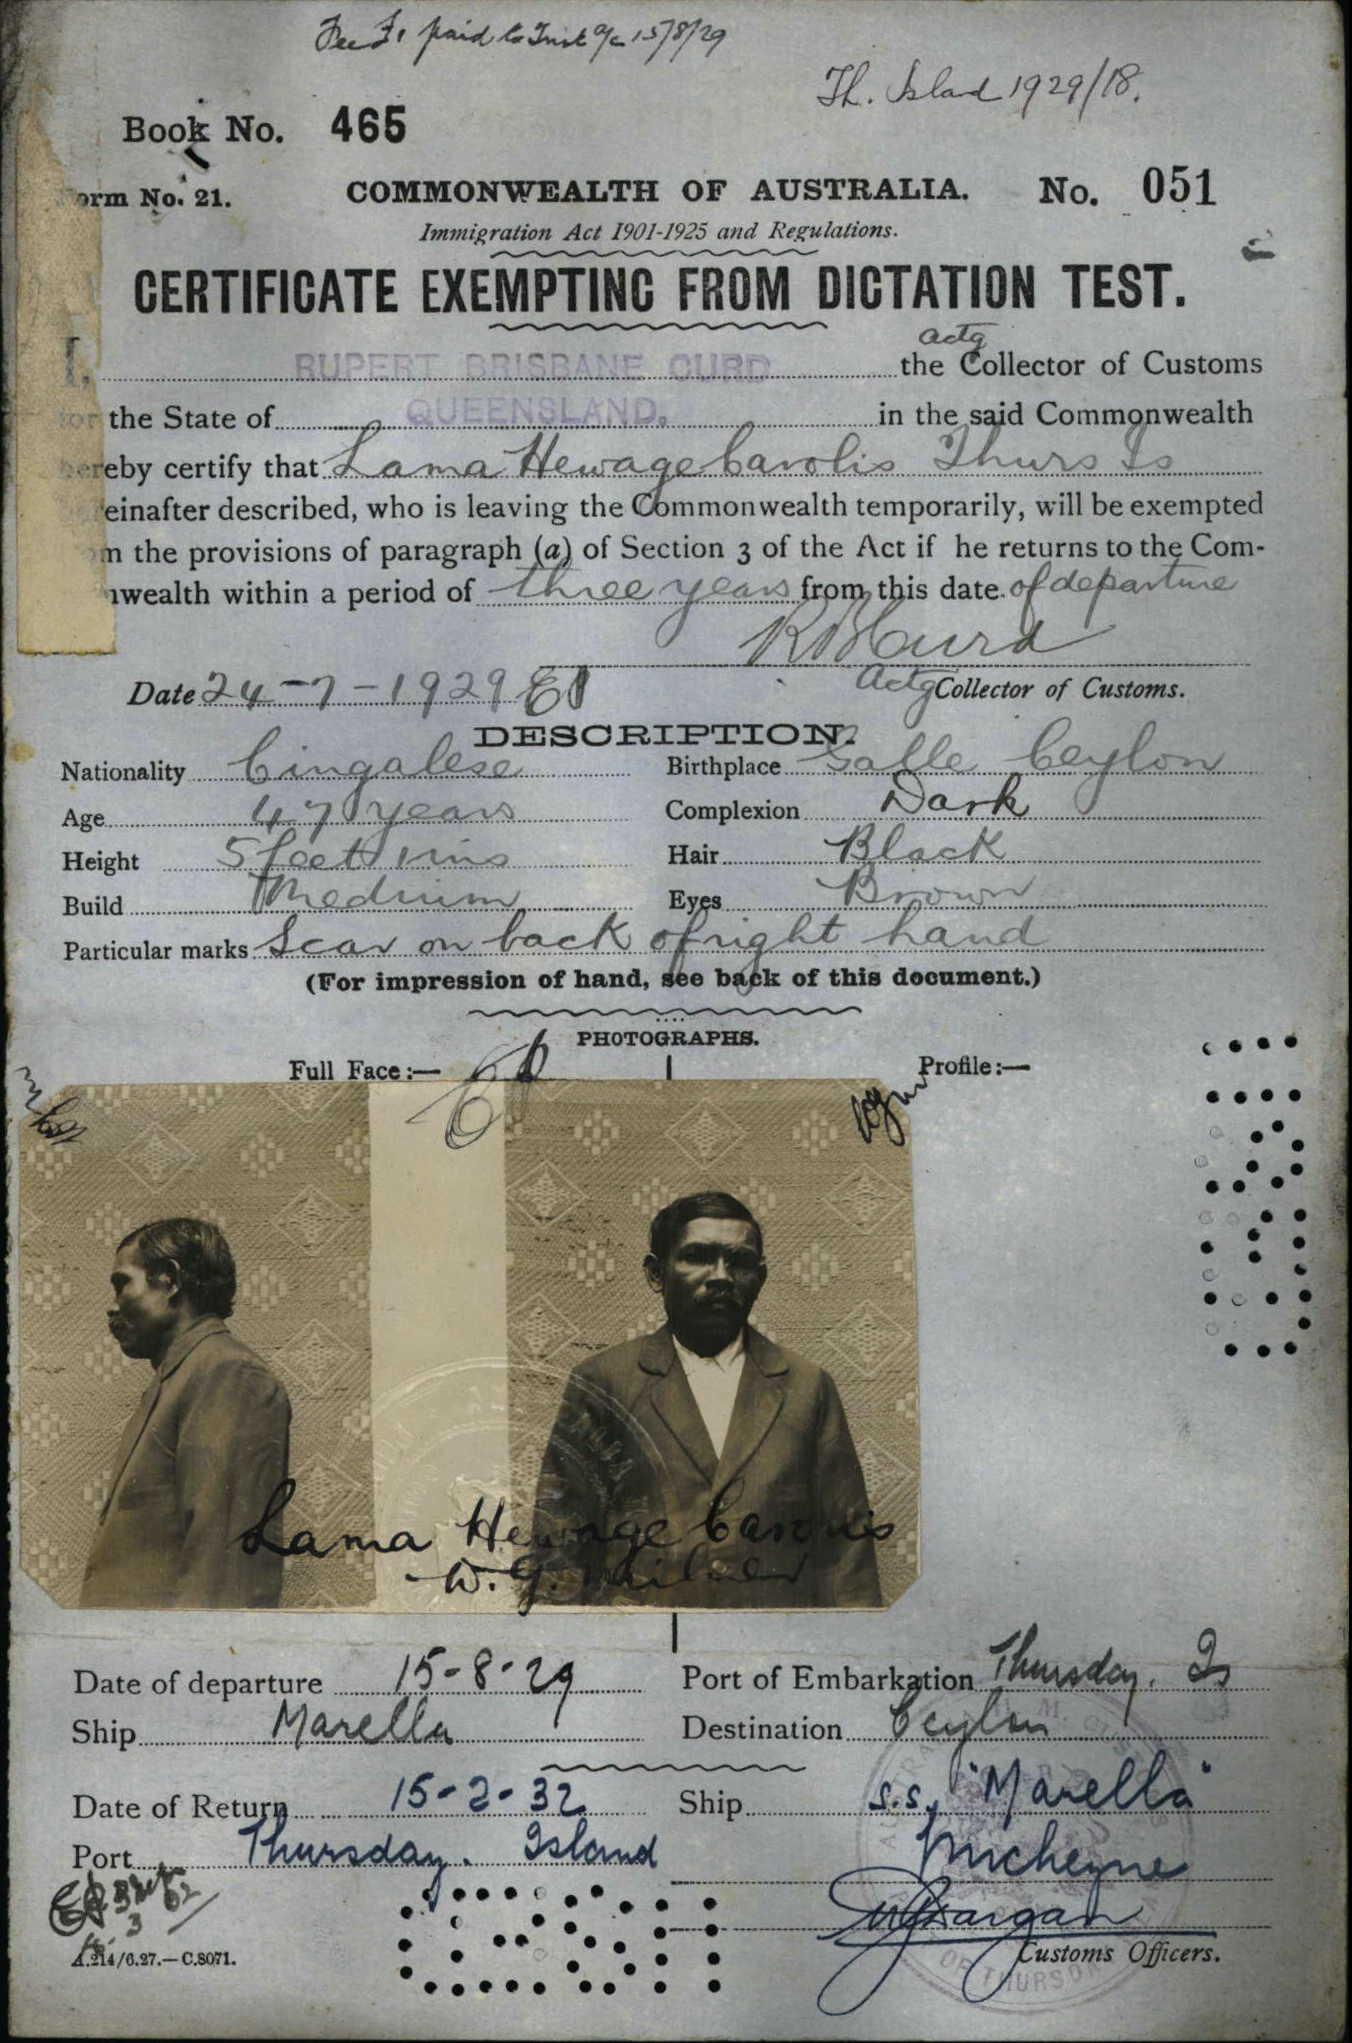 Fee £1 paid to Trust a/c 15/8/29
Th. Island 1929/18.
Book No. 465
orm No. 21. COMMONWEALTH OF AUSTRALIA. No. 051
Immigration Act 1901-1925 and Regulations.
CERTIFICATE EXEMPTING FROM DICTATION TEST.
actg
I, RUPERT BRISBANE CURD the Collector of Customs
for the State of QUEENSLAND. in the said Commonwealth
hereby certify that Lama Hewage Carolis Thurs Is
hereinafter described, who is leaving the Commonwealth temporarily, will be exempted
om the provisions of paragraph (a) of Section 3 of the Act if he returns to the Com-
nwealth within a period of three years from this date of departure
R B Curd
Date 24-7-1929 Actg Collector of Customs.
DESCRIPTION.
Nationality Cingalese Birthplace Galle Ceylon
Age 47 years Complexion Dark
Height 5 feet 1 ins Hair Black
Build Medium Eyes Brown
Particular marks Scar on back of right hand
(For impression of hand, see back of this document.)
PHOTOGRAPHS.
Full Face:— Profile:—
Lama Hewage Carolis
W. G. Milner
Date of departure 15-8-29 Port of Embarkation Thursday. Is
Ship Marella Destination Ceylon
Date of Return 15-2-32 Ship s.s. "Marella"
Port Thursday. Island
Customs Officers.
A.214/6.27.—C.8071.